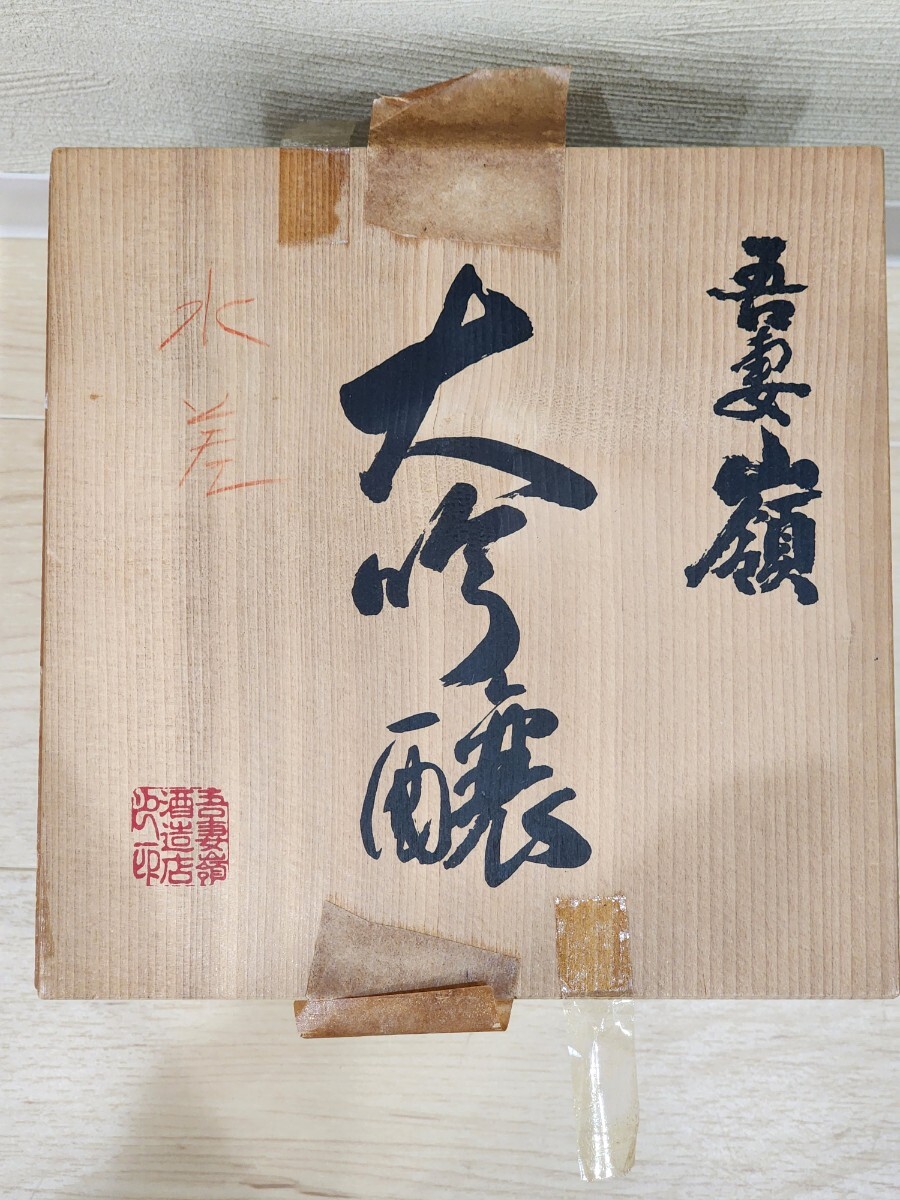 吾妻嶺
大吟醸
水差
吾妻嶺
酒造店
之印